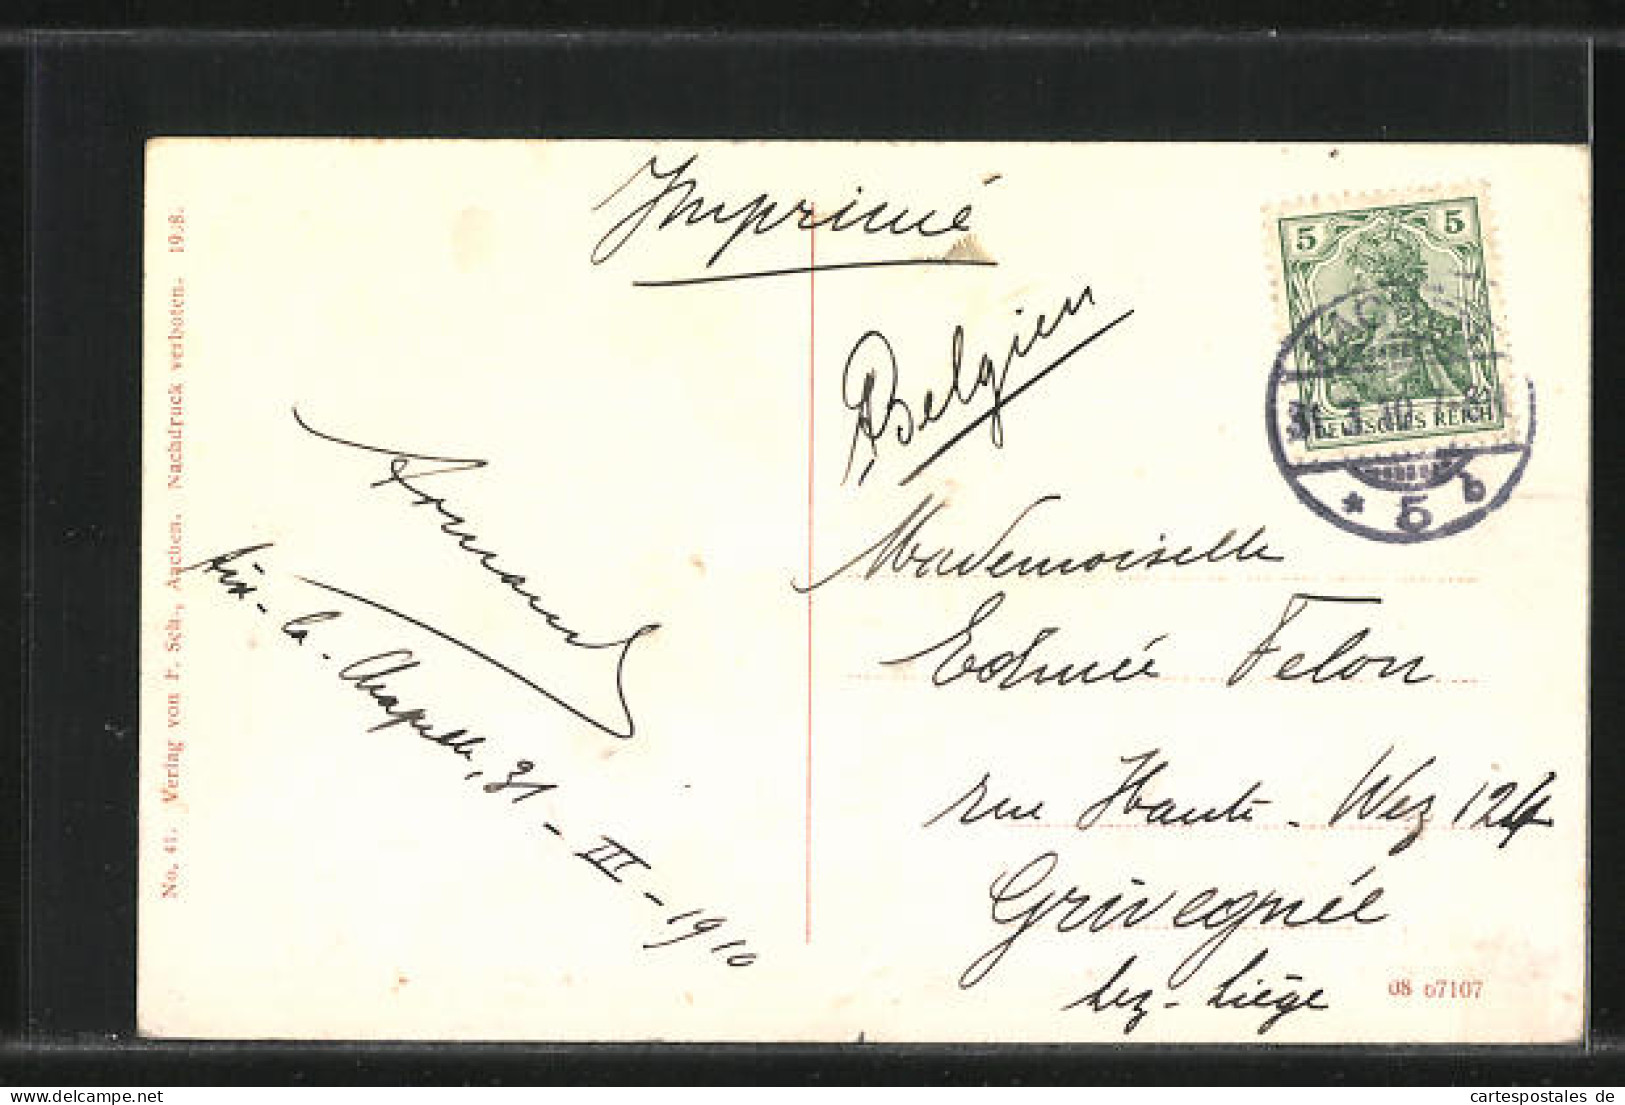 Imprimé
Belgien
5 5
DEUTSCHES REICH
31.3.10.
* 5 b
Armand
Aix-la-Chapelle, 31-III-1910
Mademoiselle
Edmée Felon
rue Haute-Wez 124
Grivegnée
lez-Liége
08 67107
No. 41. Verlag von P. Sch., Aachen. Nachdruck verboten. 1908.
cartespostales de